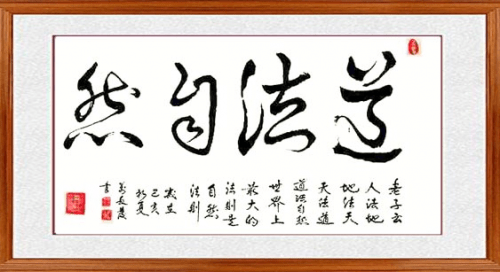 道法自然
老子云
人法地
地法天
天法道
道法自然
世界上
最大的
法则是
自然
法则
岁在
己亥
初夏
书